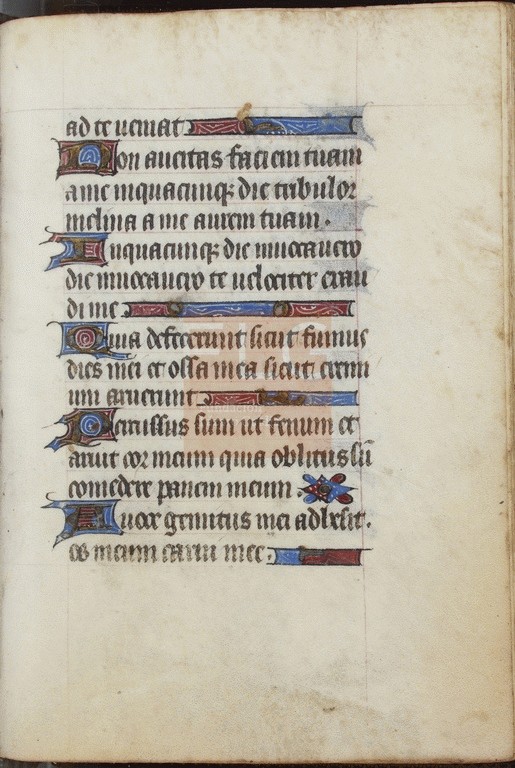 ad te veniat
Non avertas faciem tuam
a me in quacunq; die tribulor
inclina a me aurem tuam.
In quacunq; die invocavero
die invocavero te velociter exau
di me
Quia defecerunt sicut fumus
dies mei et ossa mea sicut cremi
um aruerunt
Percussus sum ut fenum et
aruit cor meum quia oblitus sū
comedere panem meum.
A voce gemitus mei adhesit.
os meum carni mee.